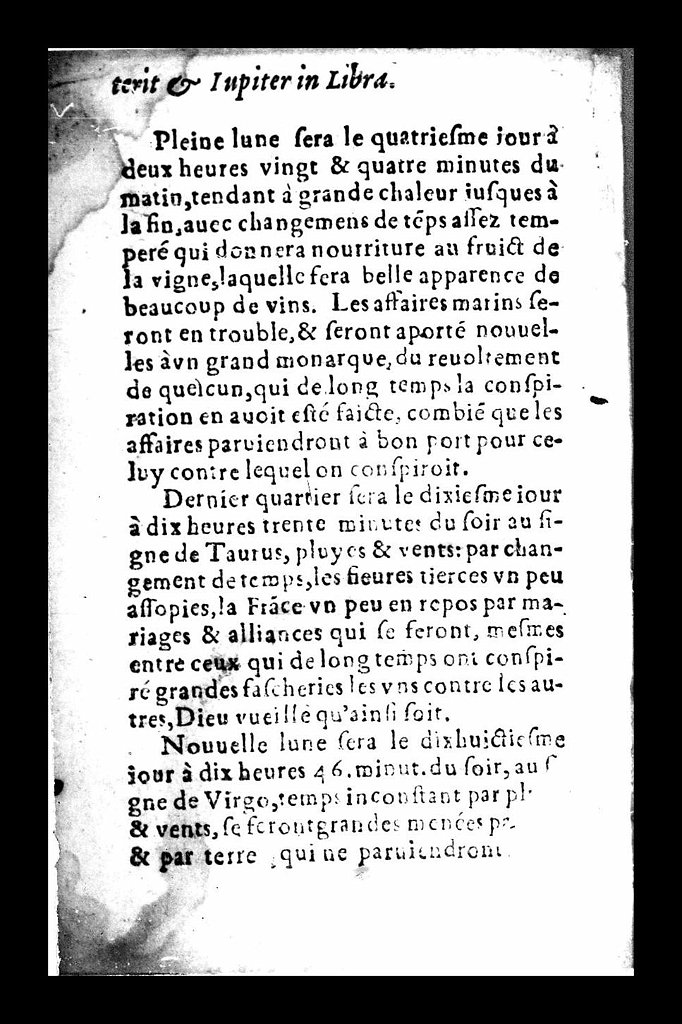 terit & Iupiter in Libra.
Pleine lune ſera le quatrieſme iour à
deux heures vingt & quatre minutes du
matin, tendant à grande chaleur iuſques à
la fin, auec changemens de tẽps aſſez tem-
peré qui donnera nourriture au fruict de
la vigne, laquelle fera belle apparence de
beaucoup de vins. Les affaires marins ſe-
ront en trouble, & ſeront aporté nouuel-
les à vn grand monarque, du reuoltement
de quelcun, qui de long temps la conſpi-
ration en auoit eſté faicte, combiẽ que les
affaires paruiendront à bon port pour ce-
luy contre lequel on conſpiroit.
Dernier quartier ſera le dixieſme iour
à dix heures trente minutes du ſoir au ſi-
gne de Taurus, pluyes & vents: par chan-
gement de temps, les fieures tierces vn peu
aſſopies, la Frãce vn peu en repos par ma-
riages & alliances qui ſe feront, meſmes
entre ceux qui de long temps ont conſpi-
ré grandes faſcheries les vns contre les au-
tres, Dieu vueille qu'ainſi ſoit.
Nouuelle lune ſera le dixhuictieſme
iour à dix heures 46. minut. du ſoir, au ſ
gne de Virgo, temps inconſtant par
& vents, ſe feront grandes menées
& par terre qui ne paruiendront